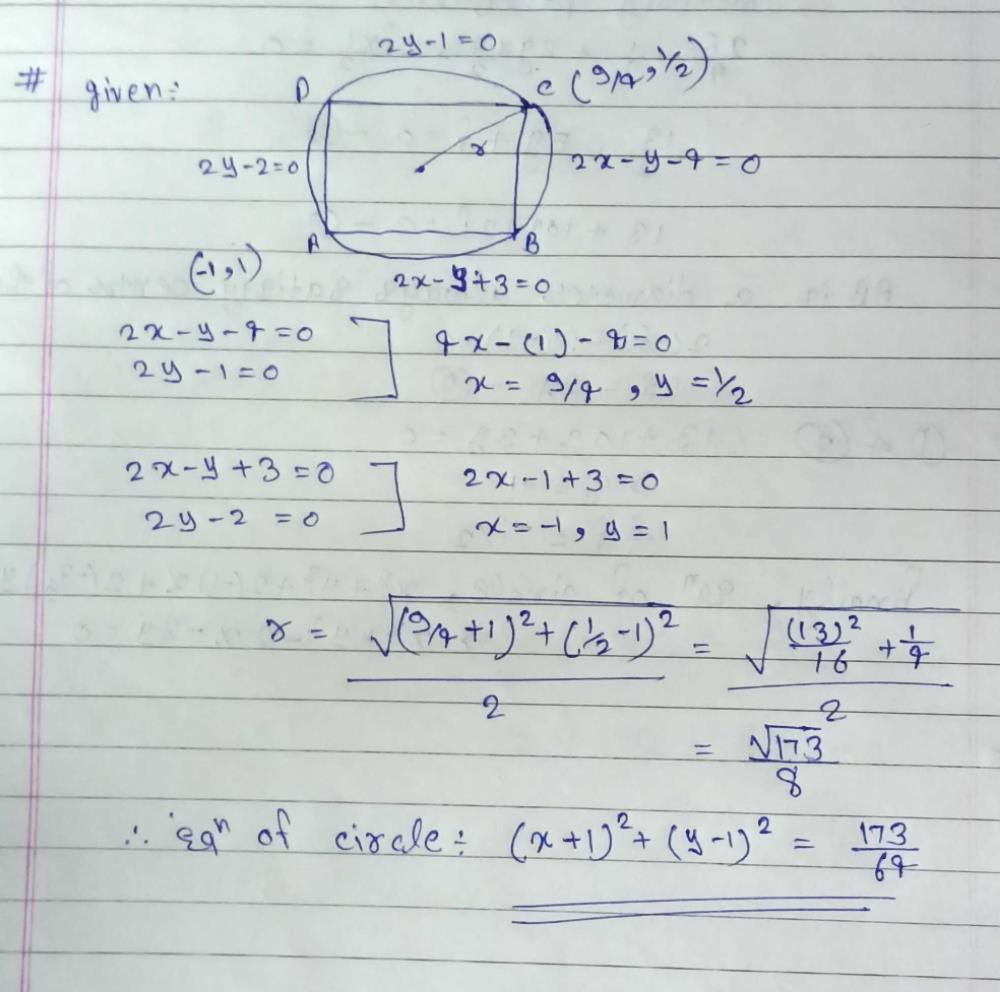 2y-1=0
# given:
D
C (9/4, 1/2)
2y-2=0
r
2x-y-4=0
A
B
(-1,1)
2x-y+3=0
2x-y-4=0
4x-(1)-8=0
2y-1=0
x = 9/4 , y = 1/2
2x-y+3=0
2x-1+3=0
2y-2 =0
x=-1, y=1
r = √((9/4+1)²+(1/2-1)²) / 2 = √((13)²/16 + 1/4) / 2
= √173 / 8
∴ Eqⁿ of circle: (x+1)²+(y-1)² = 173/64